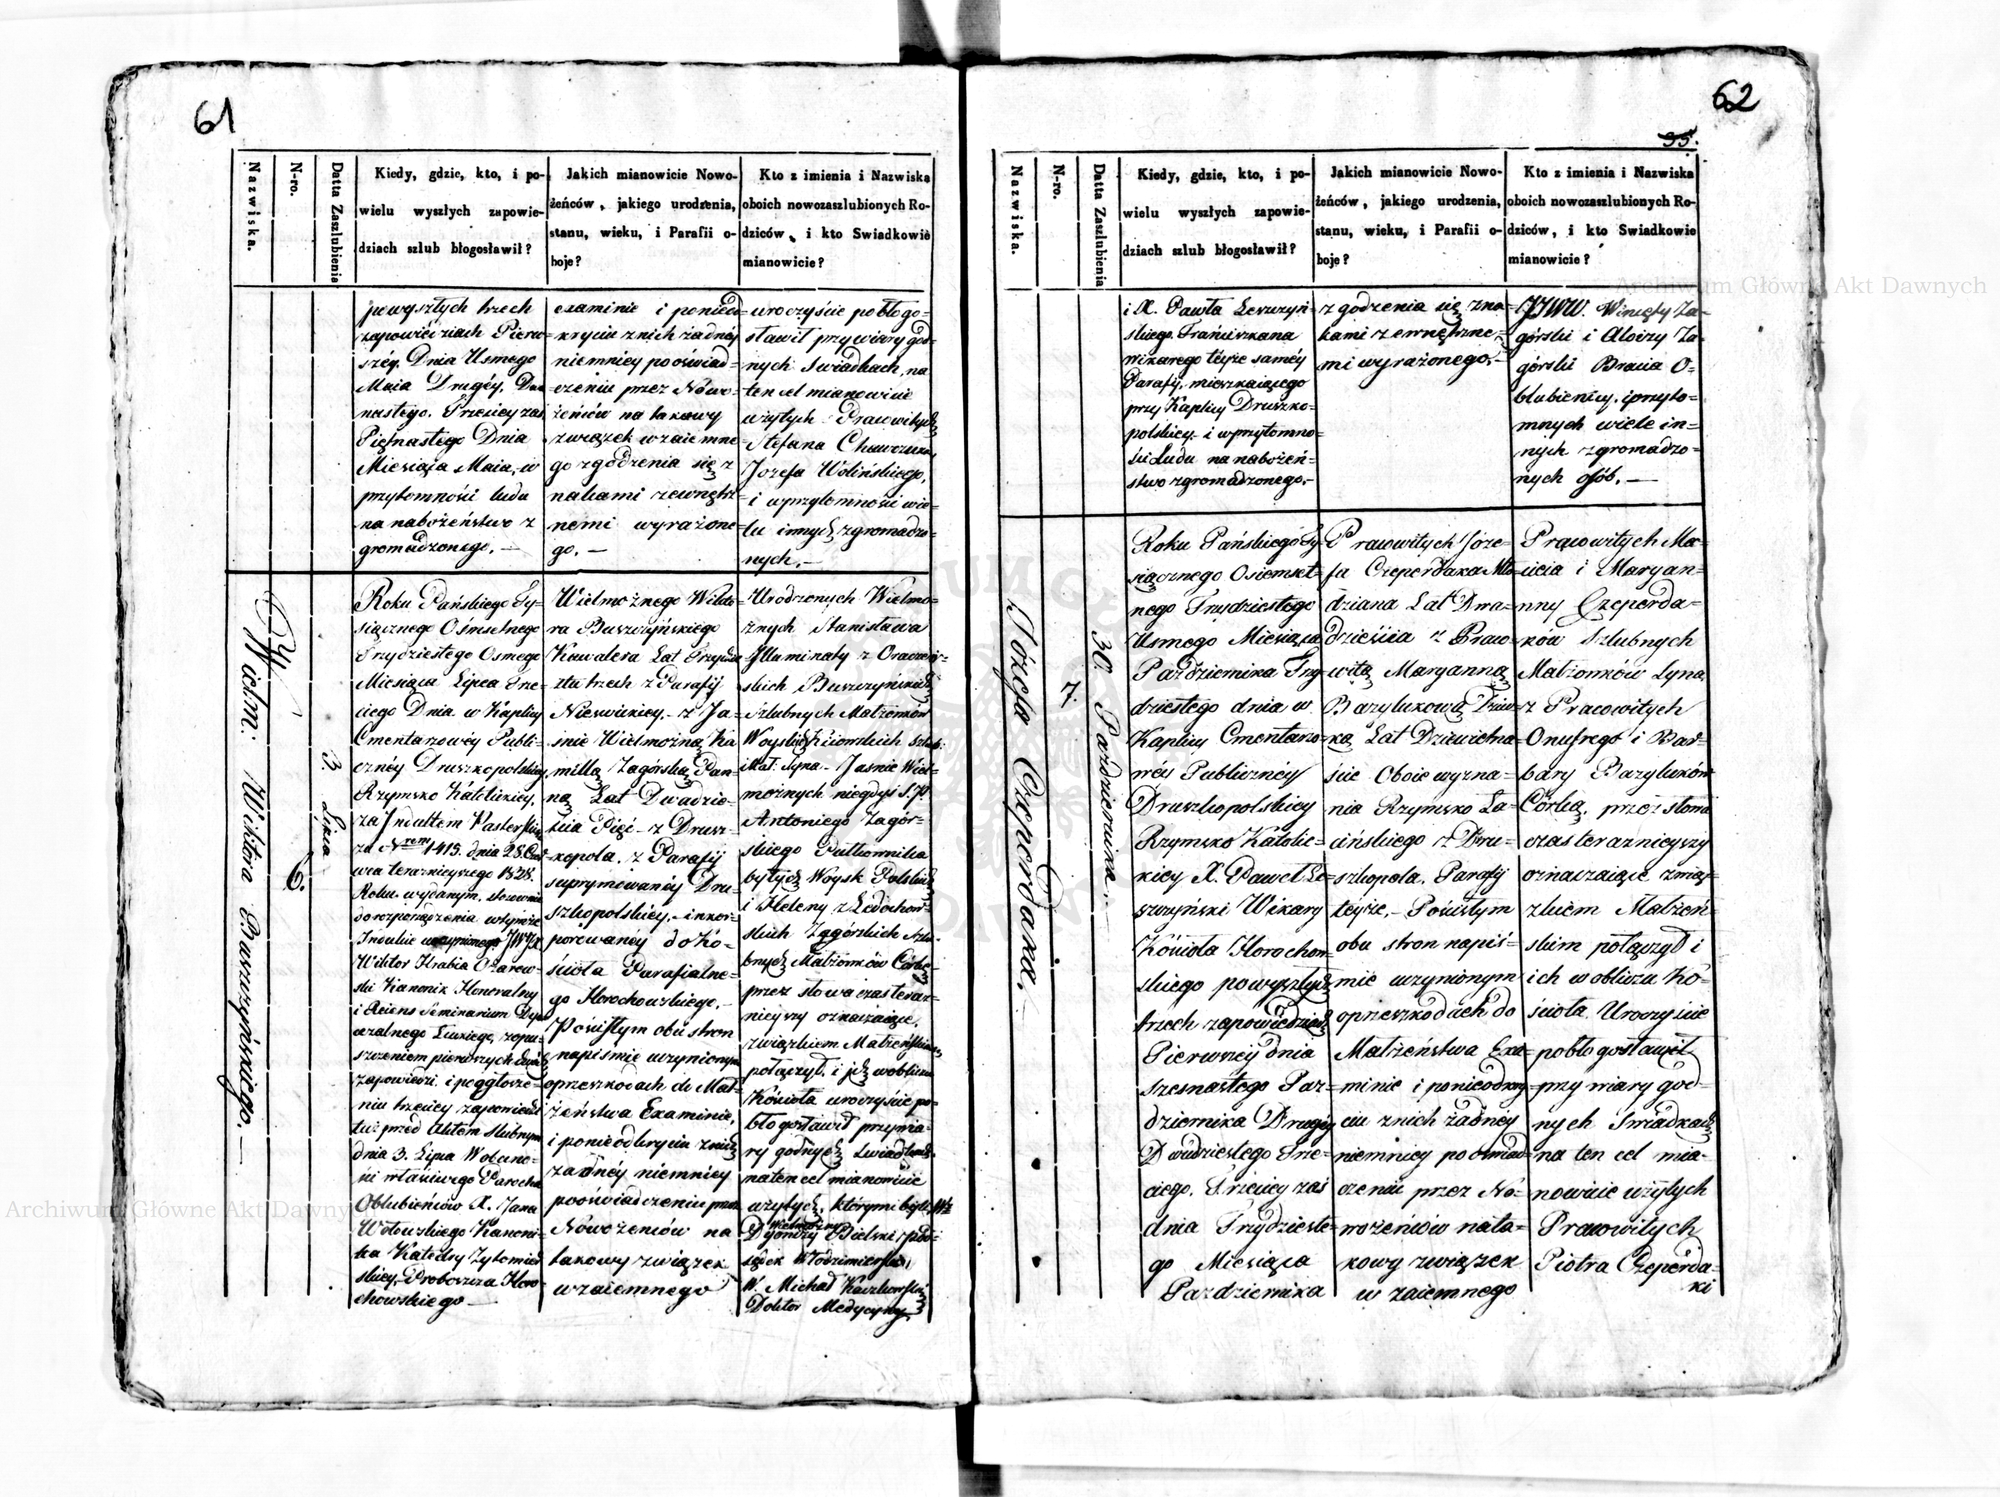 61
Nazwiska.
N-ro.
Datta Zaszlubienia
Kiedy, gdzie, kto, i po-
wielu wyszłych zapowie-
dziach szlub błogosławił?
Jakich mianowicie Nowo-
żeńców, jakiego urodzenia,
stanu, wieku, i Parafii o-
boje?
Kto z imienia i Nazwiska
oboich nowozaszlubionych Ro-
dziców, i kto Swiadkowie
mianowicie?
powyszłych trzech
zapowiedziach Pierw-
széy. Dnia Usmego
Maia Drugéy, Dwu
nastego. Trzeciey zas
Piętnastego Dnia
Miesiąca Maia, w
przytomności ludu
na nabożeństwo z
gromadzonego. —
examinie i ponieod=
kryciu z nich żadnéy
niemniey pooświad=
czeniu przez Nowo=
żeńców na takowy
związek wzaiemne=
go zgodzenia się z
nakami zewnętrz=
nemi wyrażone=
go. —
uroczyście pobłogo=
sławił przy wiary god=
nych Swiadkach, na
ten cel mianowicie
wzytych Pracowitych
Stefana
Jozefa Wolińskiego,
i w przytomności wie=
lu innych zgromadzo=
nych. —
Wielm: Wiktora Buszczyńskiego. —
6.
3 Lipca
Roku Pańskiego Ty-
siącznego Ośmsetnego
Trzydziestego Osmego
Miesiąca Lipca Trze-
ciego Dnia w Kaplicy
Cmentarzowéy Publi-
cznéy Druszkopolskiey
Rzymsko Katolickiey,
za Indultem Pasterskim
za Nrem 1415. dnia 28.
wca teraznieyszego 1838.
Roku wydanym, stosownie
do rozporządzenia w tymże
Indulcie uczynionego JWJX
Wiktor Hrabia Ożarow-
ski Kanonik Honoralny
i Reiens Seminarium Dye
cezalnego Łuckiego, zopu-
szczeniem pierwszych dwóch
zapowiedzi i pogłosze-
niu trzeciey zapowiedzi
tuż przed Aktem szlubnym
dnia 3. Lipca W obecno-
ści właściwego Parocha
Oblubieńców X. Jana
Wołowskiego Kanoni-
ka Katedry Zytomier
skiey, Proboszcza Horo-
chowskiego —
Wielmożnego Wikto-
ra Buszczyńskiego
Kawalera Lat Trzydzie
stu trzech z Parafij
Nieswickiey, — z Ja-
śnie Wielmożną Ka
millą Zagórską Pan-
ną Lat Dwadzie-
ścia Pięć — z Drusz-
kopola, z Parafij
suprymowanéy Dru-
szkopolskiey, — inkor-
porowanéy do Ko-
ścioła Parafialne-
go Horochowskiego. —
Pościsłym obu stron
napiśmie uczynionym
o przeszkodach do Mał-
żeństwa Examinie,
i ponieodkryciu z nich
żadney niemniey
pooświadczeniu przez
Nowożeńców na
takowy związek
wzaiemnego
Urodzonych Wielmo-
żnych Stanisława
Illuminaty z
skich Buszczyńskich
Szlubnych Małżonków
Woysk: Kiiowskich
i Mał: Syna — Jasnie Wiel-
możnych niegdys S. P.
Antoniego Zagór-
skiego Pułkownika
byłych Woysk Polskich
i Heleny z Ledochow-
skich Zagórskich Szlu-
bnych Małżonków Córkę
przez słowa czas teraz-
nieyszy oznaczaiące,
związkiem Małżeńskim
połączył, i ich w obliczu
Kościoła uroczyście po-
błogosławił przy wia-
ry godnych Swiadkach
na ten cel mianowicie
wzytych, którymi byli: W
Wielmożny
Dyonizy Bielski Pod-
sędek Włodzimierski,
W. Michał Kaczkowski
Doktor Medycyny
62
35.
Nazwiska.
N-ro.
Datta Zaszlubienia
Kiedy, gdzie, kto, i po-
wielu wyszłych zapowie-
dziach szlub błogosławił?
Jakich mianowicie Nowo-
żeńców, jakiego urodzenia,
stanu, wieku, i Parafii o-
boje?
Kto z imienia i Nazwiska
oboich nowozaszlubionych Ro-
dziców, i kto Swiadkowie
mianowicie?
i X. Pawła Leszczyń-
skiego, Franciszkana
wikarego téyże saméy
Parafij, mieszkaiącego
przy Kaplicy Druszko-
polskiey, i w przytomno=
ści Ludu na nabożeń-
stwo zgromadzonego. —
zgodzenia się zna=
kami zewnętrzne-
mi wyrażonego. —
JJWW. Wincęty Za-
górski i Aloizy Za-
górski Bracia O-
blubienicy, i przyto-
mnych wiele in-
nych zgromadzo-
nych osób. —
Józefa Czeperdaka. —
7.
30. Października. —
Roku Pańskiego Ty-
siącznego Osiemset-
nego Trzydziestego
Usmego Miesiąca
Października Trzy-
dziestego dnia w
Kaplicy Cmentarzo-
wéy Publicznéy
Druszkopolskiey
Rzymsko Katolic-
kiey X. Paweł Le-
szczyński Wikary
Kościoła Horochow-
skiego powyszłych
trzech zapowiedziach
Pierwszéy dnia
szesnastego Paź-
dziernika Drugiéy
Dwudziestego Trze-
ciego. Trzeciey zaś
dnia Trzydzieste-
go Miesiąca
Pazdziernika
Pracowitych Józe-
fa Czeperdaka Mło-
dziana Lat Dwa-
dzieścia z Praco-
witą Maryanną
Bazylukową Dziew-
ką Lat Dziewietna-
ście Oboie wyzna-
nia Rzymsko Ła-
cińskiego z Dru-
szkopola, Parafij
téyże. — Pościsłym
obu stron napiś-
mie uczynionym
o przeszkodach do
Małżeństwa Exa-
minie i ponieodkry-
ciu z nich żadnéy
niemniey pooświad-
czeniu przez No-
wożeńców na ta-
kowy związek
w zaiemnego
Pracowitych Ma-
cieia i Maryan-
nny Czeperda-
ków Szlubnych
Małżonków Syna
z Pracowitych
Onufrego i Bar-
bary Bazyluków
Córką, przez słowa
czas teraznieyszy
oznaczaiące związ-
zkiem Małżeń-
skim połączył i
ich w obliczu Ko-
ścioła Uroczyscie
pobłogosławił
przy wiary god-
nych Swiadkach
na ten cel mia-
nowicie wżytych
Pracowitych
Piotra Czeperda-
ki
Archiwum Główne Akt Dawnych
Archiwum Główne Akt Dawnych